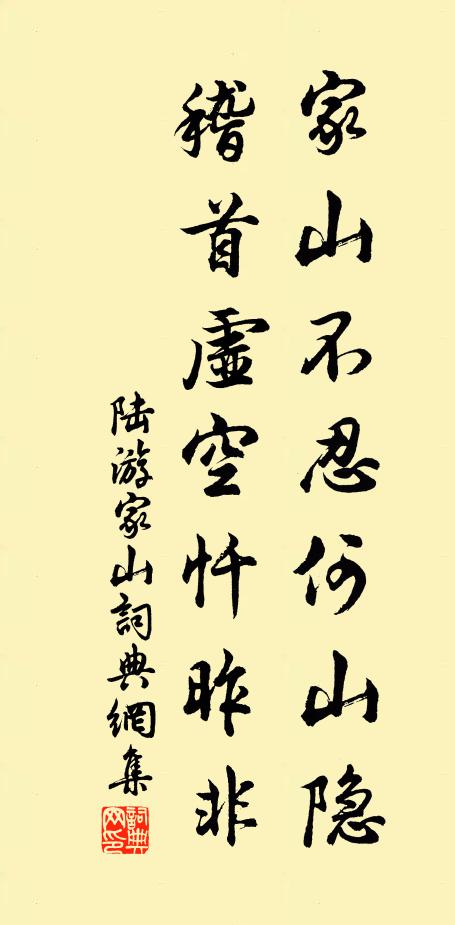 家山不忍何山隐
稽首虚空忏昨非
陆游家山詞典網集
詞典網印